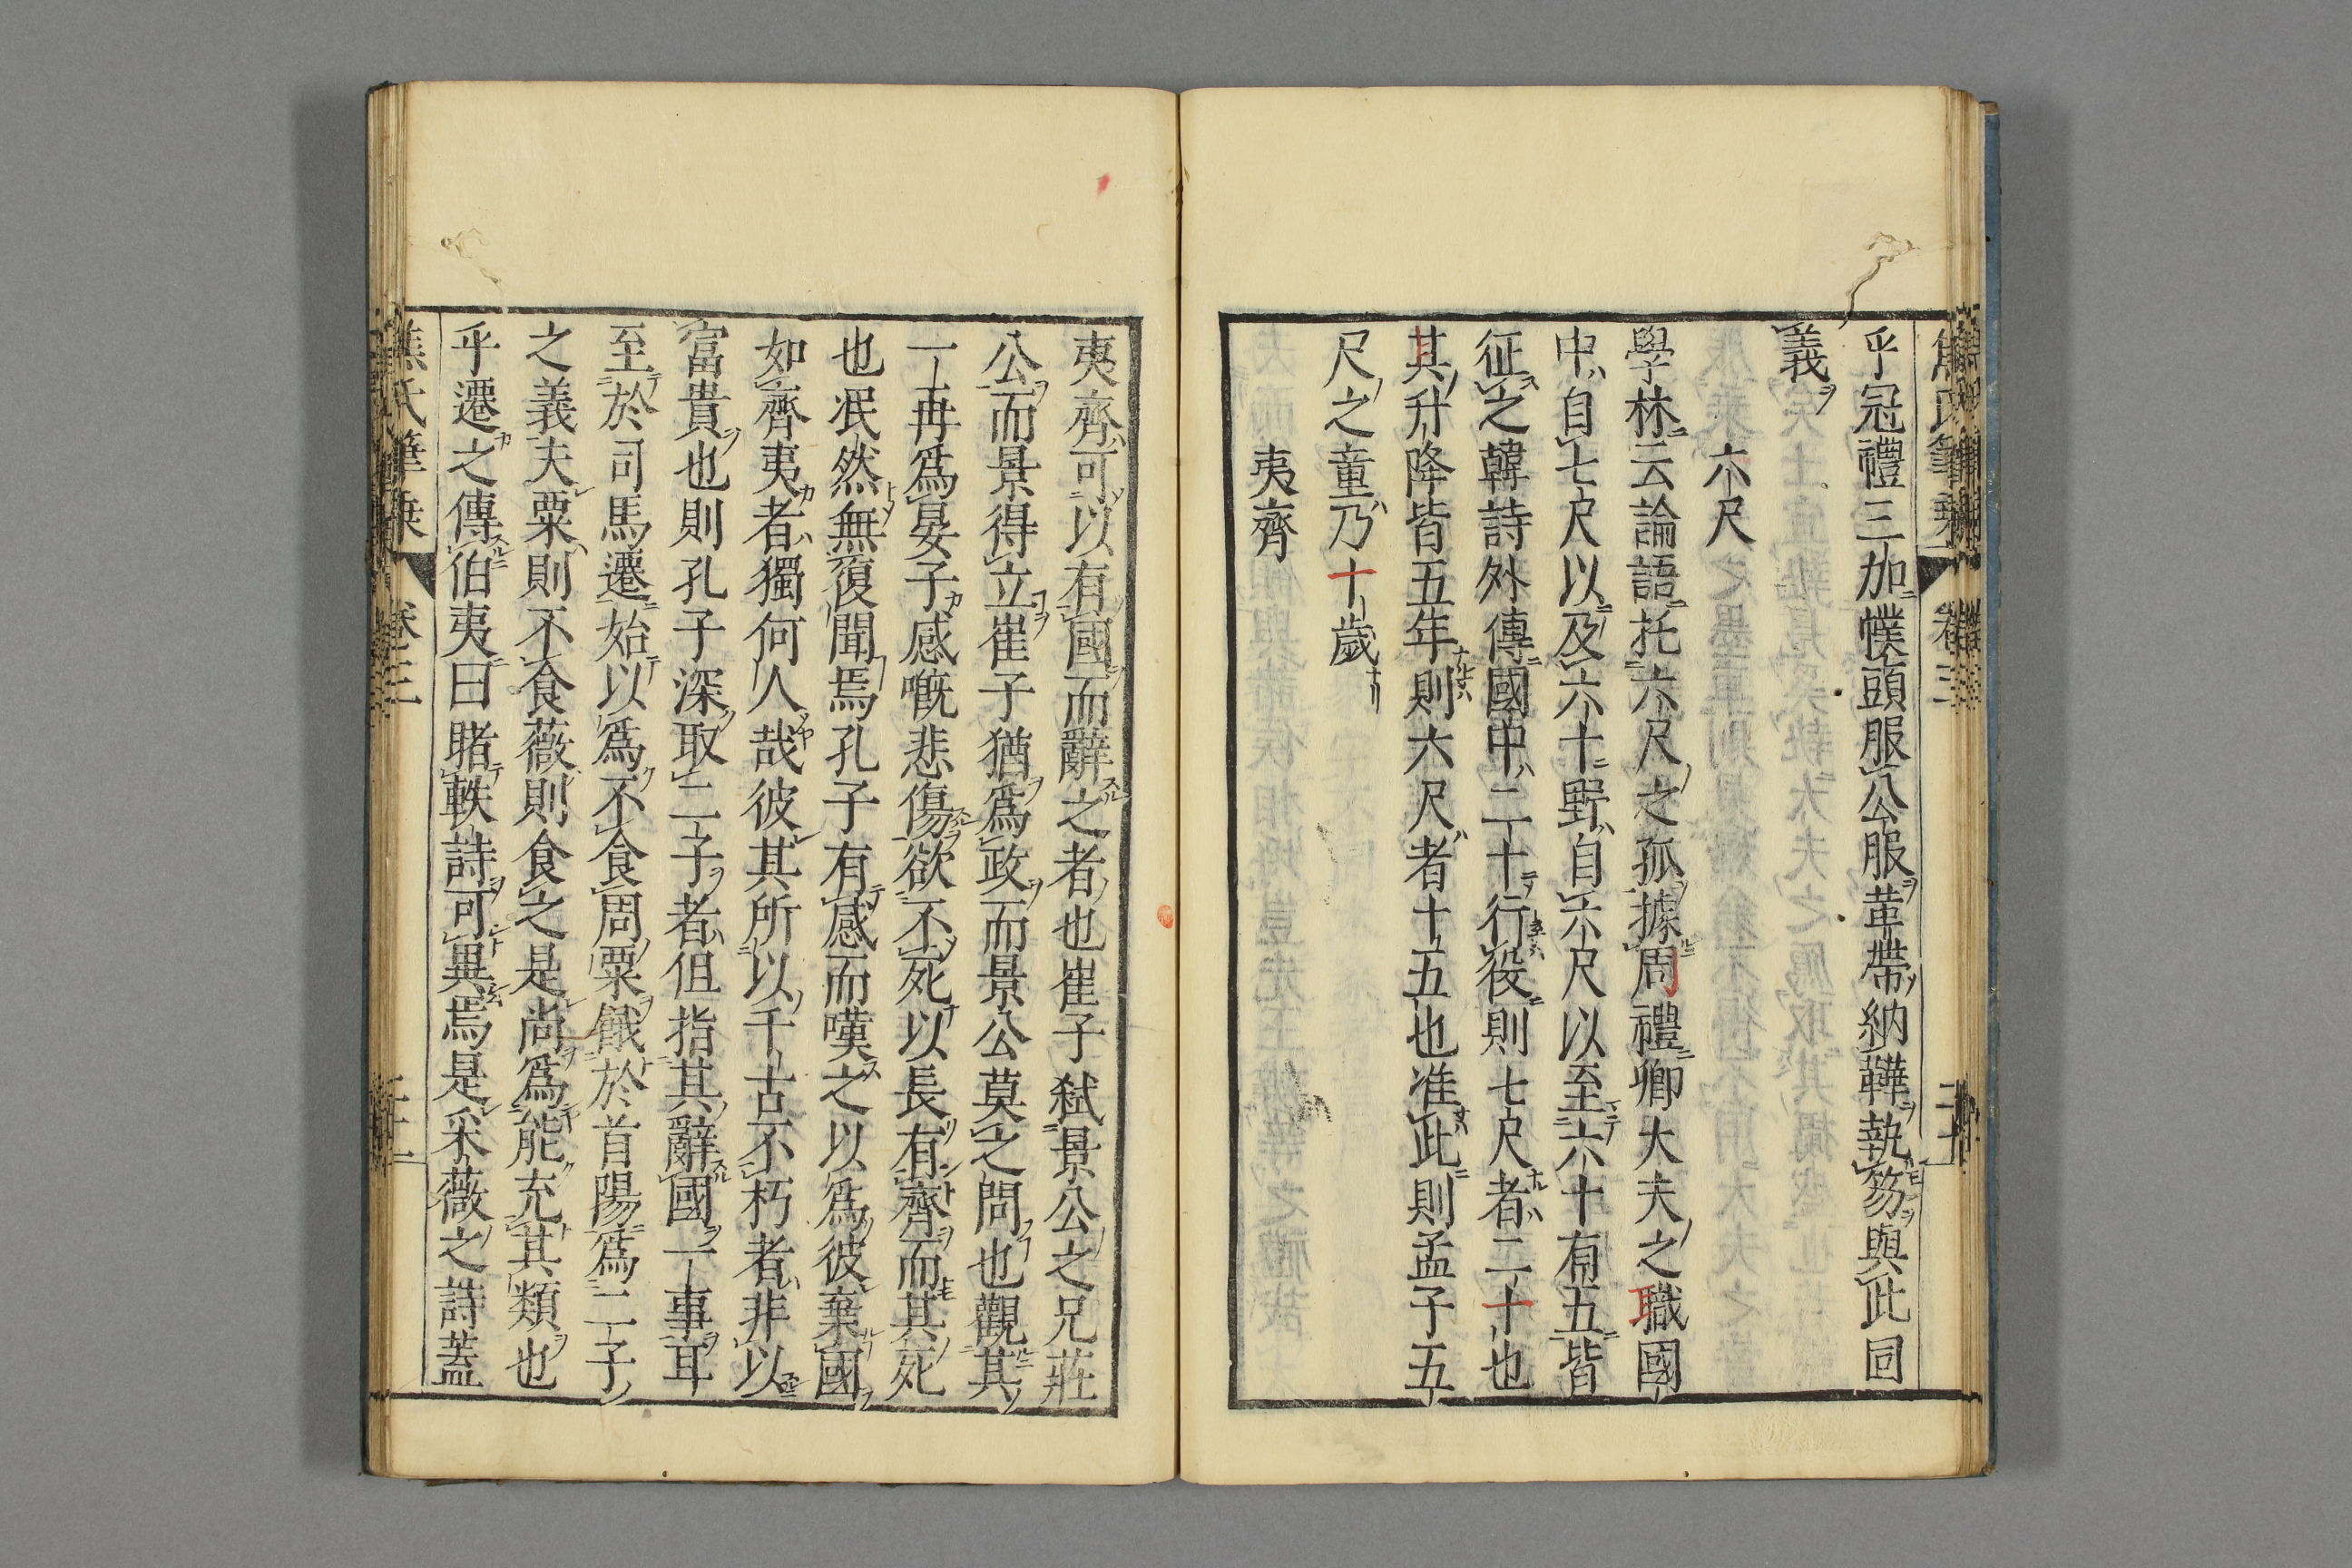 焦氏筆乗 卷三 二十
乎冠禮三加幞頭服公服革帶納鞾執笏與此同
義
六尺
學林云論語托六尺之孤據周禮卿大夫之職國
中自七尺以及六十野自六尺以至六十有五皆
征之韓詩外傳國中二十行役則七尺者二十也
其升降皆五年則六尺者十五也准此則孟子五
尺之童乃十歲
夷齊
夷齊可以有國而辭之者也崔子弑景公之兄莊
公而景得立崔子猶爲政而景公莫之問也觀其
一再爲晏子感嘅悲傷欲不死以長有齊而其死
也泯然無復聞焉孔子有感而嘆之以爲彼棄國
如齊夷者獨何人哉彼其所以千古不朽者非以
富貴也則孔子深取二子者但指其辭國一事耳
至於司馬遷始以爲不食周粟餓於首陽爲二子
之義夫粟則不食薇則食之是尚爲能充其類也
乎遷之傳伯夷曰睹軼詩可異焉是采薇之詩蓋
焦氏筆乗 卷三 二十一